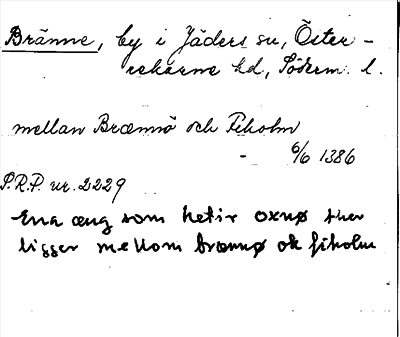 Bränne, by i Jäders sn, Öster-
rekarne hd, Söderm. l.
mellan Brænnö och Fiholm
- 6/6 1386
S.R.P. nr. 2229
Ena æng som hetir oxnø ther
ligger mellom brænnø ok fiholm